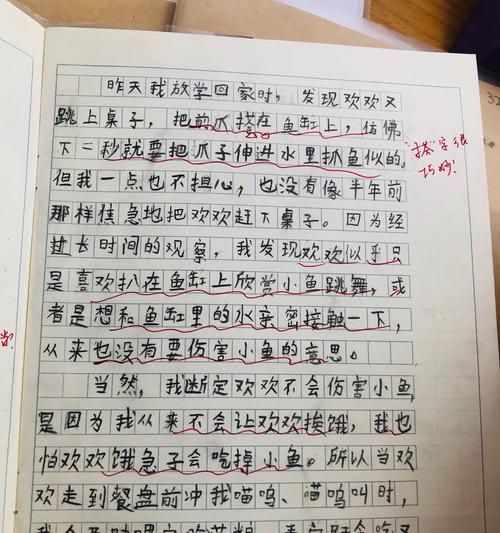 昨天我放学回家时，发现欢欢又
跳上桌子，把前爪搭在鱼缸上，仿佛
下一秒就要把爪子伸进水里抓鱼似的。
但我一点也不担心，也没有像半年前
那样焦急地把欢欢赶下桌子。因为经
过长时间的观察，我发现欢欢似乎只
是喜欢扒在鱼缸上欣赏小鱼跳舞，或
者是想和鱼缸里的水亲密接触一下，
从来也没有要伤害小鱼的意思。
当然，我断定欢欢不会伤害小鱼，
是因为我从来不会让欢欢挨饿，我也
怕欢欢饿急了会吃掉小鱼。所以当欢
欢走到餐盘前冲我喵呜、喵呜叫时，
"搭"字很
巧妙！